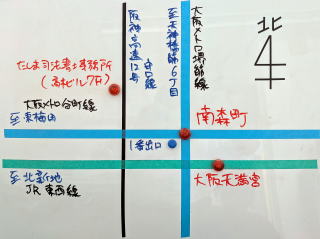 北
大阪メトロ堺筋線
至天神橋筋6丁目
阪神高速12号
守口線
たしま司法書士事務所
(高木ビル7F)
大阪メトロ谷町線
至東梅田
南森町
1番出口
至北新地
JR東西線
大阪天満宮